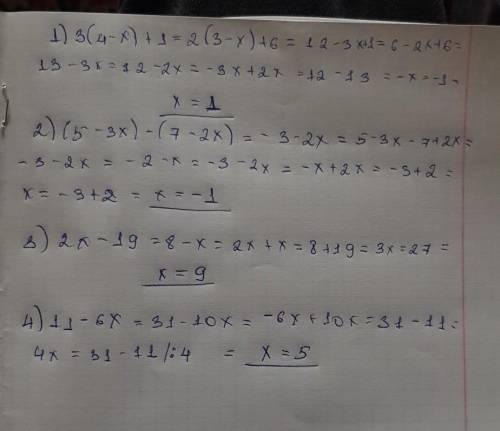 1) 3(4-x)+1=2(3-x)+6= 12-3x+1=6-2x+6=
13-3x=12-2x=-3x+2x=12-13=-x=-1=
x=1
2) (5-3x)-(7-2x)=-3-2x=5-3x-7+2x=
-3-2x=-2-x=-3-2x=-x+2x=-3+2=
x=-3+2= x=-1
3) 2x-19=8-x=2x+x=8+19=3x=27=
x=9
4) 11-6x=31-10x=-6x+10x=31-11=
4x=31-11/:4 = x=5